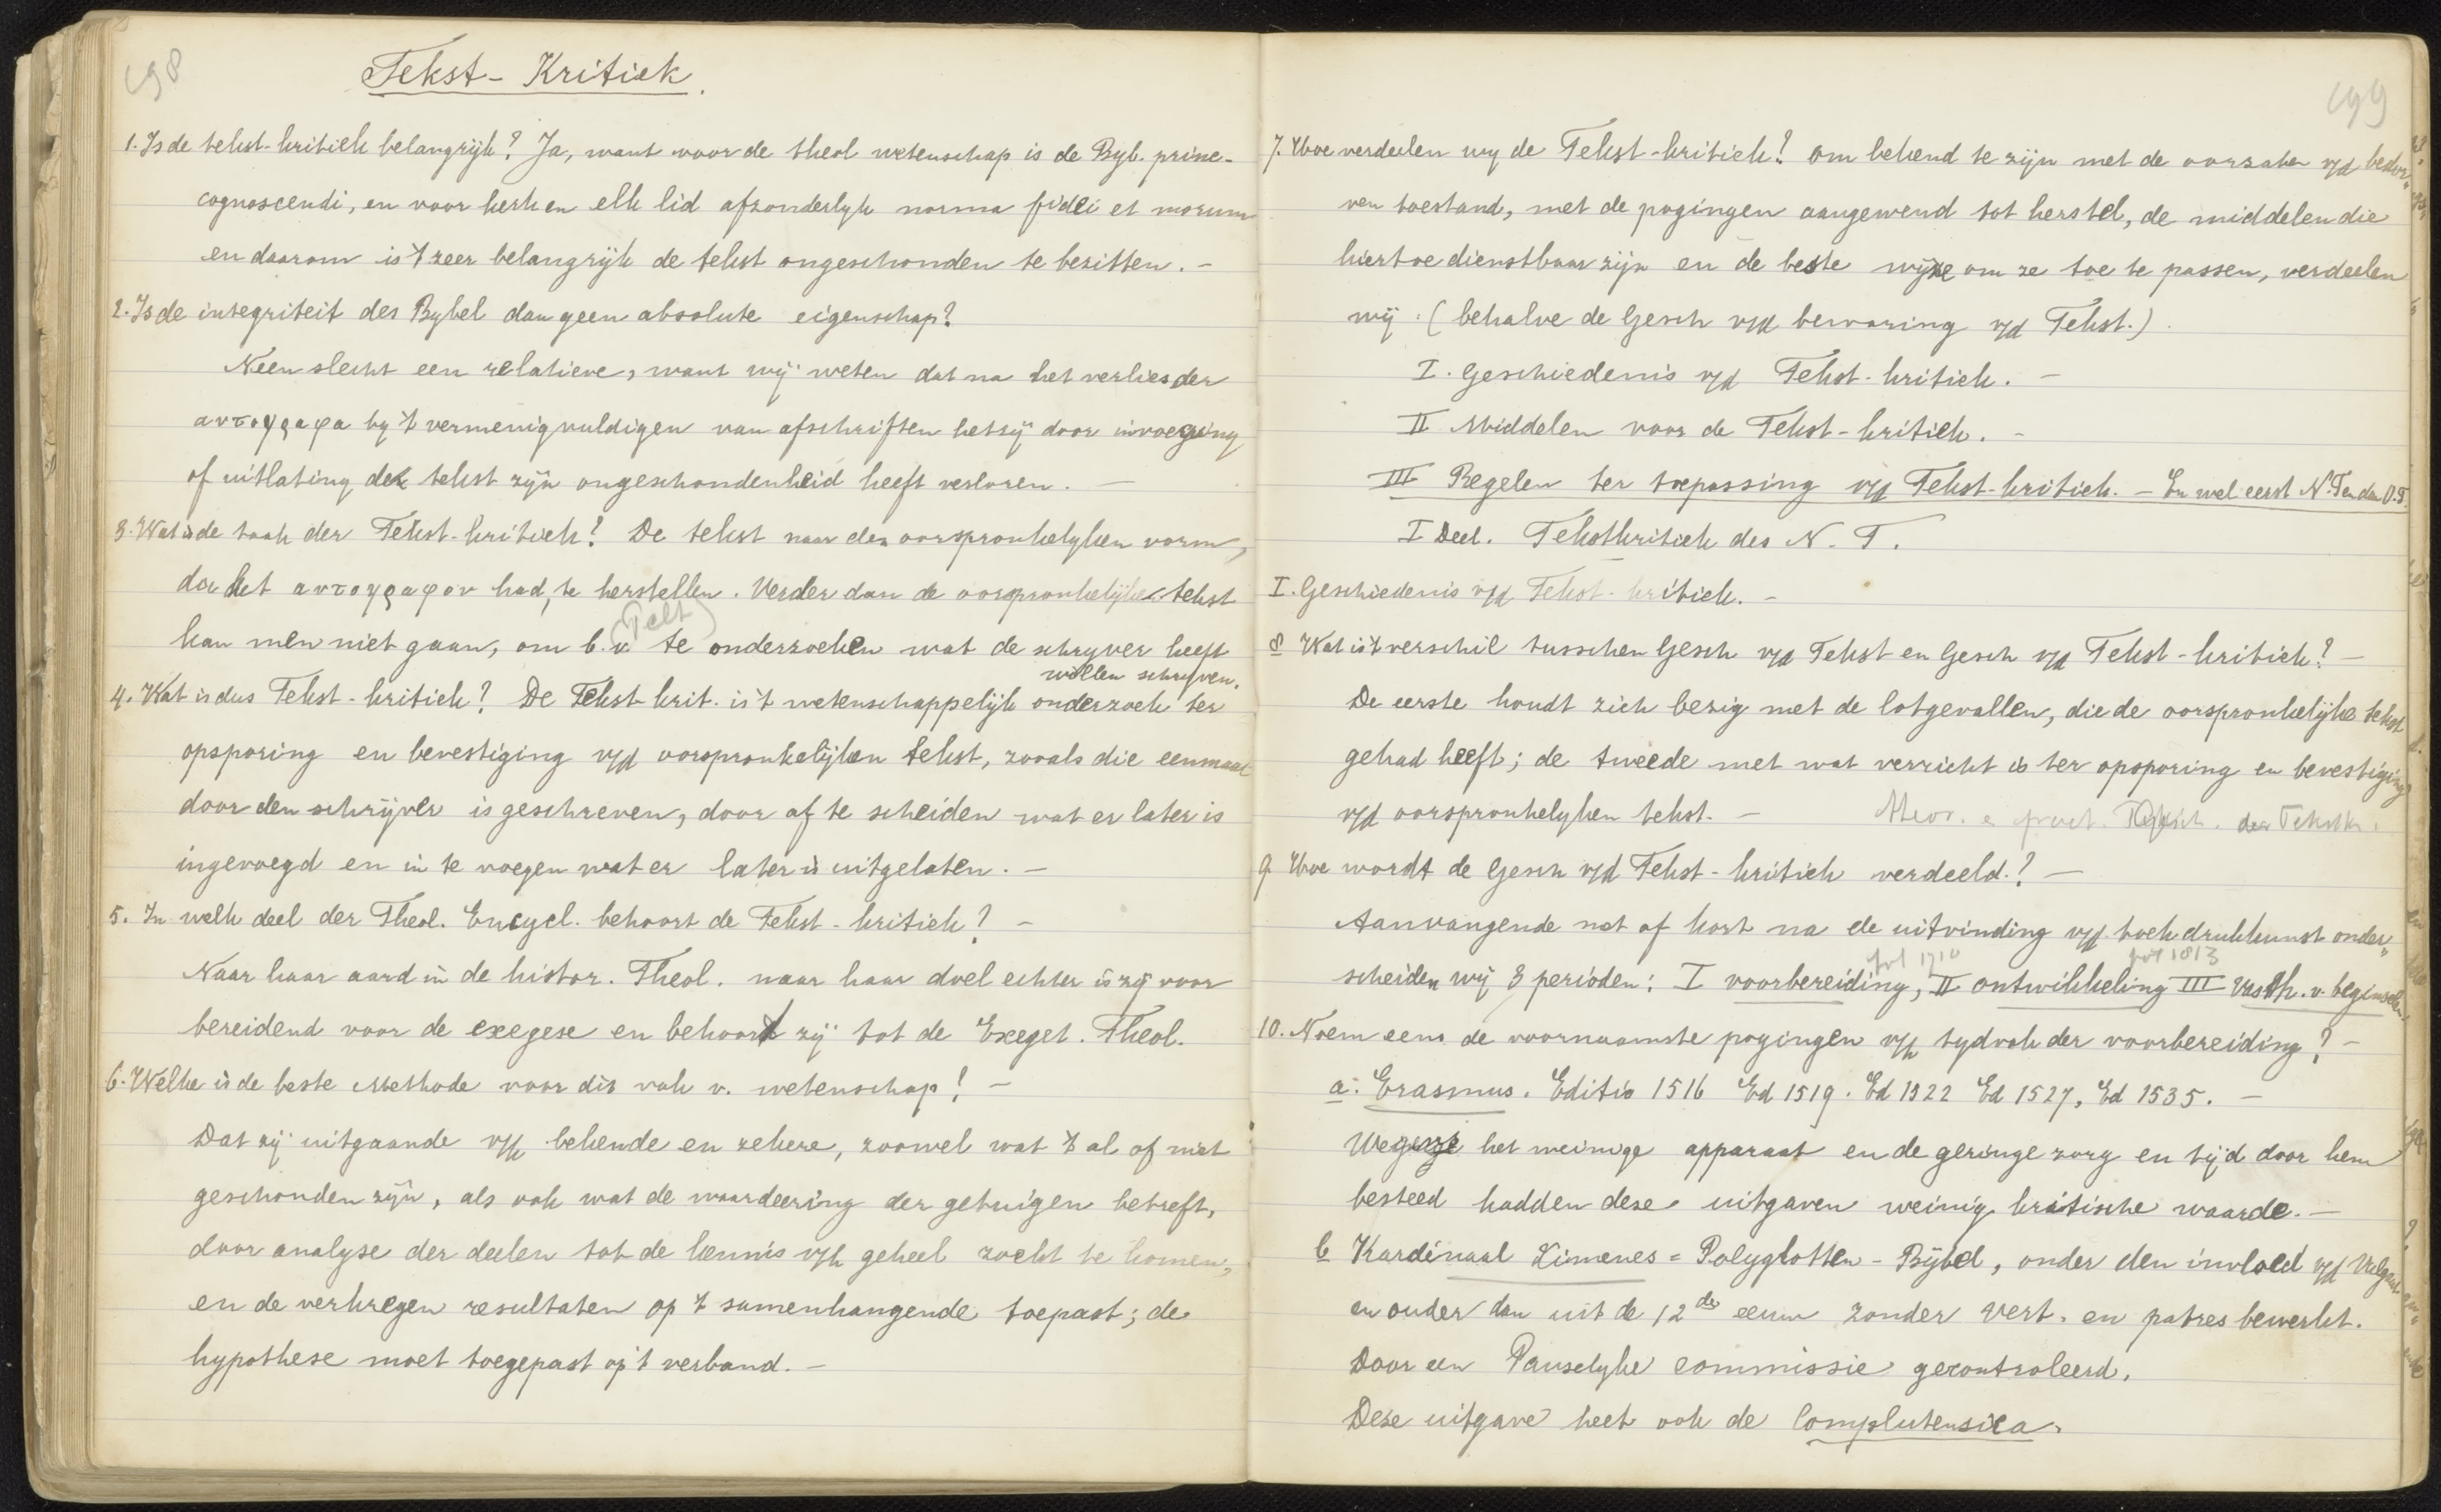 198
Tekst-Kritiek.
1. Is de tekst-kritiek belangrijk? Ja, want voor de theol wetenschap is de Byb. princ-
cognoscendi, en voor kerk en elk lid afzonderlyk norma fidei et morum
en daarom is 't zeer belangrijk de tekst ongeschonden te bezitten. -
2. Is de integriteit des Bybel dan geen absolute eigenschap?
Neen slecht een relatieve, want wij weten dat na het verlies der
αυτογραφα by 't vermenigvuldigen van afschriften hetzij door invoeging
of uitlating de tekst zijn ongeschondenheid heeft verloren. -
3. Wat is de taak der Tekst-kritiek? De tekst naar den oorspronkelyken vorm,
die het αυτογραφον had, te herstellen. Verder dan de oorspronkelijke tekst
(Pelt)
kan men niet gaan, om b.v. te onderzoeken wat de schryver heeft
willen schryven.
4. Wat is dus Tekst-kritiek? De Tekst-krit. is 't wetenschappelijk onderzoek ter
opsporing en bevestiging v/d oorspronkelijken tekst, zooals die eenmaal
door den schrijver is geschreven, door af te scheiden wat er later is
ingevoegd en in te voegen wat er later is uitgelaten. -
5. In welk deel der Theol. Encycl. behoort de Tekst-kritiek? -
Naar haar aard in de histor. Theol. naar haar doel echter is zij voor
bereidend voor de exegese en behoort zij tot de Exeget. Theol.
6. Welke is de beste Methode voor dit vak v. wetenschap? -
Dat zij uitgaande v/h bekende en zekere, zoowel wat 't al of niet
geschonden zijn, als ook wat de waardeering der getuigen betreft,
door analyse der deelen tot de kennis v/h geheel zoekt te komen,
en de verkregen resultaten op 't samenhangende toepast; de
hypothese moet toegepast op 't verband. -
199
7. Hoe verdeelen wy de Tekst-kritiek? Om bekend te zijn met de oorzaken v/d bedor-
ven toestand, met de pogingen aangewend tot herstel, de middelen die
hiertoe dienstbaar zijn en de beste wijze om ze toe te passen, verdeelen
wij (behalve de Gesch v/d bewaring v/d Tekst.)
I. Geschiedenis v/d Tekst-kritiek. -
II Middelen voor de Tekst-kritiek. -
III Regelen ter toepassing v/d Tekst-kritiek. - En wel eerst N.T en dan O.T.
I Deel. Tekstkritiek des N. T.
I. Geschiedenis v/d Tekst-kritiek. -
8 Wat is 't verschil tusschen Gesch v/d Tekst en Gesch v/d Tekst-kritiek? -
De eerste houdt zich bezig met de lotgevallen, die de oorspronkelijke tekst
gehad heeft; de tweede met wat verricht is ter opsporing en bevestiging
v/d oorspronkelyken tekst. -
der Tekstkr.
9 Hoe wordt de Gesch v/d Tekst-kritiek verdeeld? -
Aanvangende met of kort na de uitvinding v/d boekdrukkunst onder-
tot 1710 tot 1813
scheiden wij 3 perioden: I voorbereiding, II ontwikkeling III Vasth. v. beginselen.
10. Noem eens de voornaamste pogingen v/h tydvak der voorbereiding? -
a. Erasmus. Editio 1516 Ed 1519. Ed 1522 Ed 1527, Ed 1535. -
Wegens het weinige apparaat en de geringe zorg en tijd door hem
besteed hadden deze uitgaven weinig kritische waarde. -
b Kardinaal Ximenes = Polyglotten-Bijbel, onder den invloed v/d Vulgaat
en ouder dan uit de 12de eeuw zonder vert. en patres bewerkt.
Door een Pauselyke commissie gecontroleerd.
Deze uitgave heet ook de Complutensica.